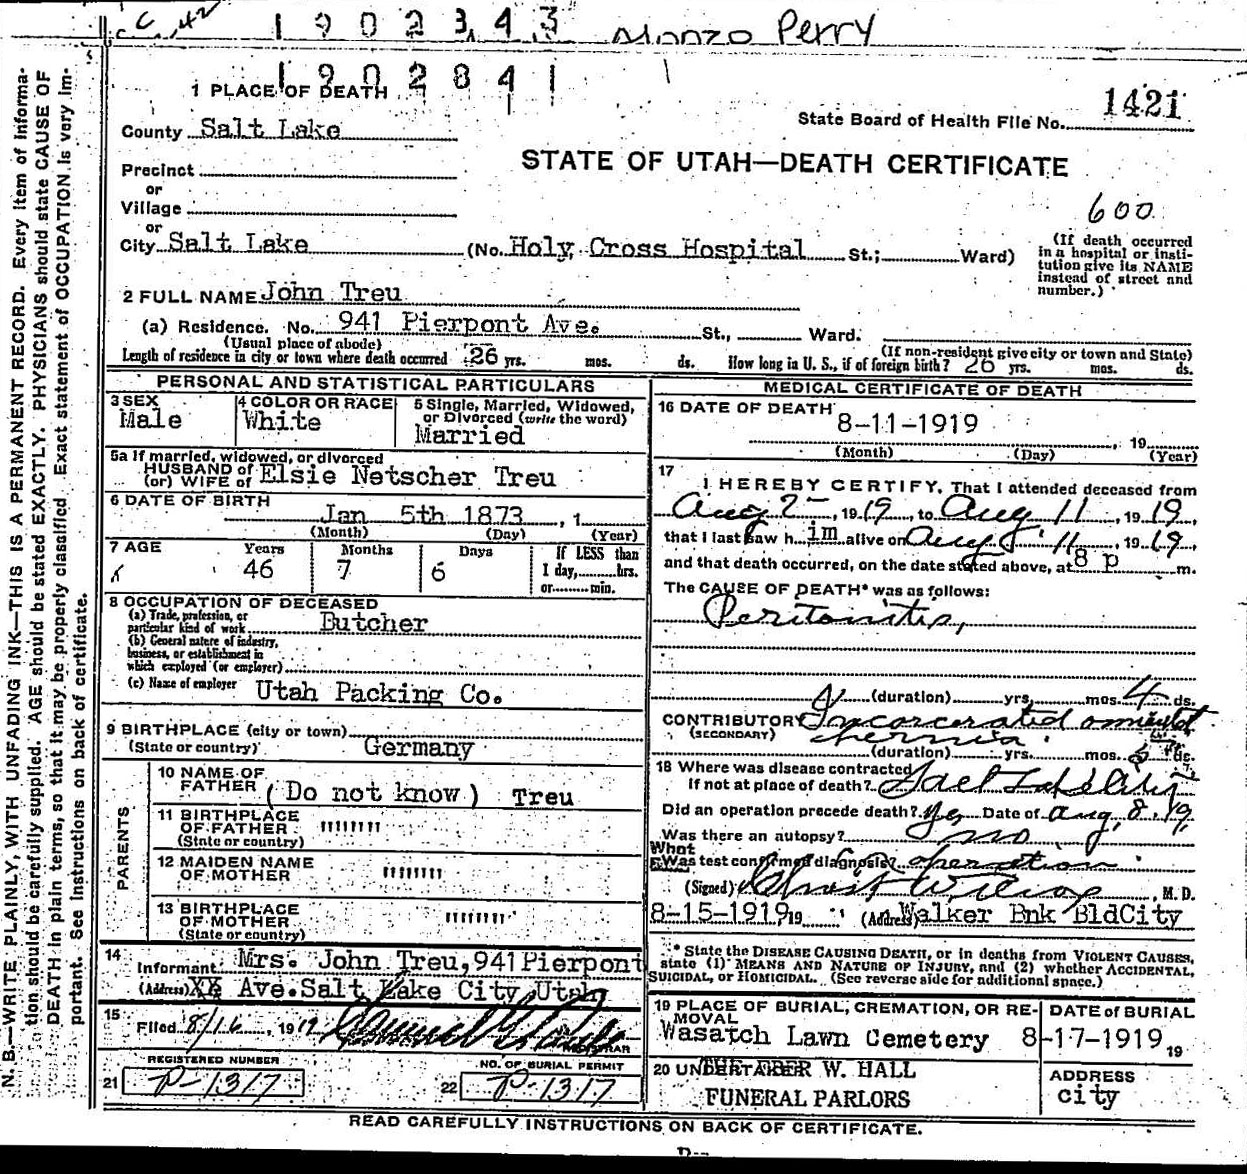 C 42 1902343 Alonzo Perry
1902841
1 PLACE OF DEATH
State Board of Health File No. 1421
County Salt Lake
STATE OF UTAH—DEATH CERTIFICATE
Precinct
or
Village
600
or
City Salt Lake (No. Holy Cross Hospital St.; Ward)
(If death occurred
in a hospital or insti-
tution give its NAME
instead of street and
number.)
2 FULL NAME John Treu
(a) Residence. No. 941 Pierpont Ave. St., Ward.
(Usual place of abode) (If non-resident give city or town and State)
Length of residence in city or town where death occurred 26 yrs. mos. ds. How long in U. S., if of foreign birth? 26 yrs. mos. ds.
PERSONAL AND STATISTICAL PARTICULARS
3 SEX 4 COLOR OR RACE 5 Single, Married, Widowed,
or Divorced (write the word)
Male White Married
5a If married, widowed, or divorced
HUSBAND of
(or) WIFE of Elsie Netscher Treu
6 DATE OF BIRTH
Jan 5th 1873, 1
(Month) (Day) (Year)
7 AGE Years Months Days If LESS than
1 day, hrs.
or min.
46 7 6
8 OCCUPATION OF DECEASED
(a) Trade, profession, or
particular kind of work Butcher
(b) General nature of industry,
business, or establishment in
which employed (or employer)
(c) Name of employer Utah Packing Co.
9 BIRTHPLACE (city or town)
(State or country) Germany
PARENTS
10 NAME OF
FATHER (Do not know) Treu
11 BIRTHPLACE
OF FATHER """"""""
(State or country)
12 MAIDEN NAME
OF MOTHER """"""""
13 BIRTHPLACE
OF MOTHER """"""""
(State or country)
14
Informant Mrs. John Treu, 941 Pierpont
(Address) XX Ave. Salt Lake City, Utah
15
Filed 8/16, 1919
REGISTRAR
REGISTERED NUMBER NO. OF BURIAL PERMIT
21 P-1317 22 P-1317
MEDICAL CERTIFICATE OF DEATH
16 DATE OF DEATH
8-11-1919
, 19
(Month) (Day) (Year)
17
I HEREBY CERTIFY, That I attended deceased from
Aug 2, 1919, to Aug 11, 1919,
that I last saw h im alive on Aug 11, 1919,
and that death occurred, on the date stated above, at 8 p m.
The CAUSE OF DEATH* was as follows:
Peritonitis,
(duration) yrs. mos. 4 ds.
CONTRIBUTORY Incarcerated omental
(SECONDARY) hernia
(duration) yrs. mos. ds.
18 Where was disease contracted
If not at place of death? Salt Lake City
Did an operation precede death? Yes Date of Aug. 8, 19,
Was there an autopsy? no
What
Was test confirmed diagnosis? operation
(Signed) M. D.
8-15-1919 19 (Address) Walker Bnk Bld City
* State the DISEASE CAUSING DEATH, or in deaths from VIOLENT CAUSES,
state (1) MEANS AND NATURE OF INJURY, and (2) whether ACCIDENTAL,
SUICIDAL, or HOMICIDAL. (See reverse side for additional space.)
19 PLACE OF BURIAL, CREMATION, OR RE-
MOVAL
DATE OF BURIAL
Wasatch Lawn Cemetery 8-17-1919 19
20 UNDERTAKER
THE EBER W. HALL
FUNERAL PARLORS
ADDRESS
city
READ CAREFULLY INSTRUCTIONS ON BACK OF CERTIFICATE.
N. B.—WRITE PLAINLY, WITH UNFADING INK—THIS IS A PERMANENT RECORD. Every item of informa-
tion should be carefully supplied. AGE should be stated EXACTLY. PHYSICIANS should state CAUSE OF
DEATH in plain terms, so that it may be properly classified. Exact statement of OCCUPATION is very im-
portant. See instructions on back of certificate.